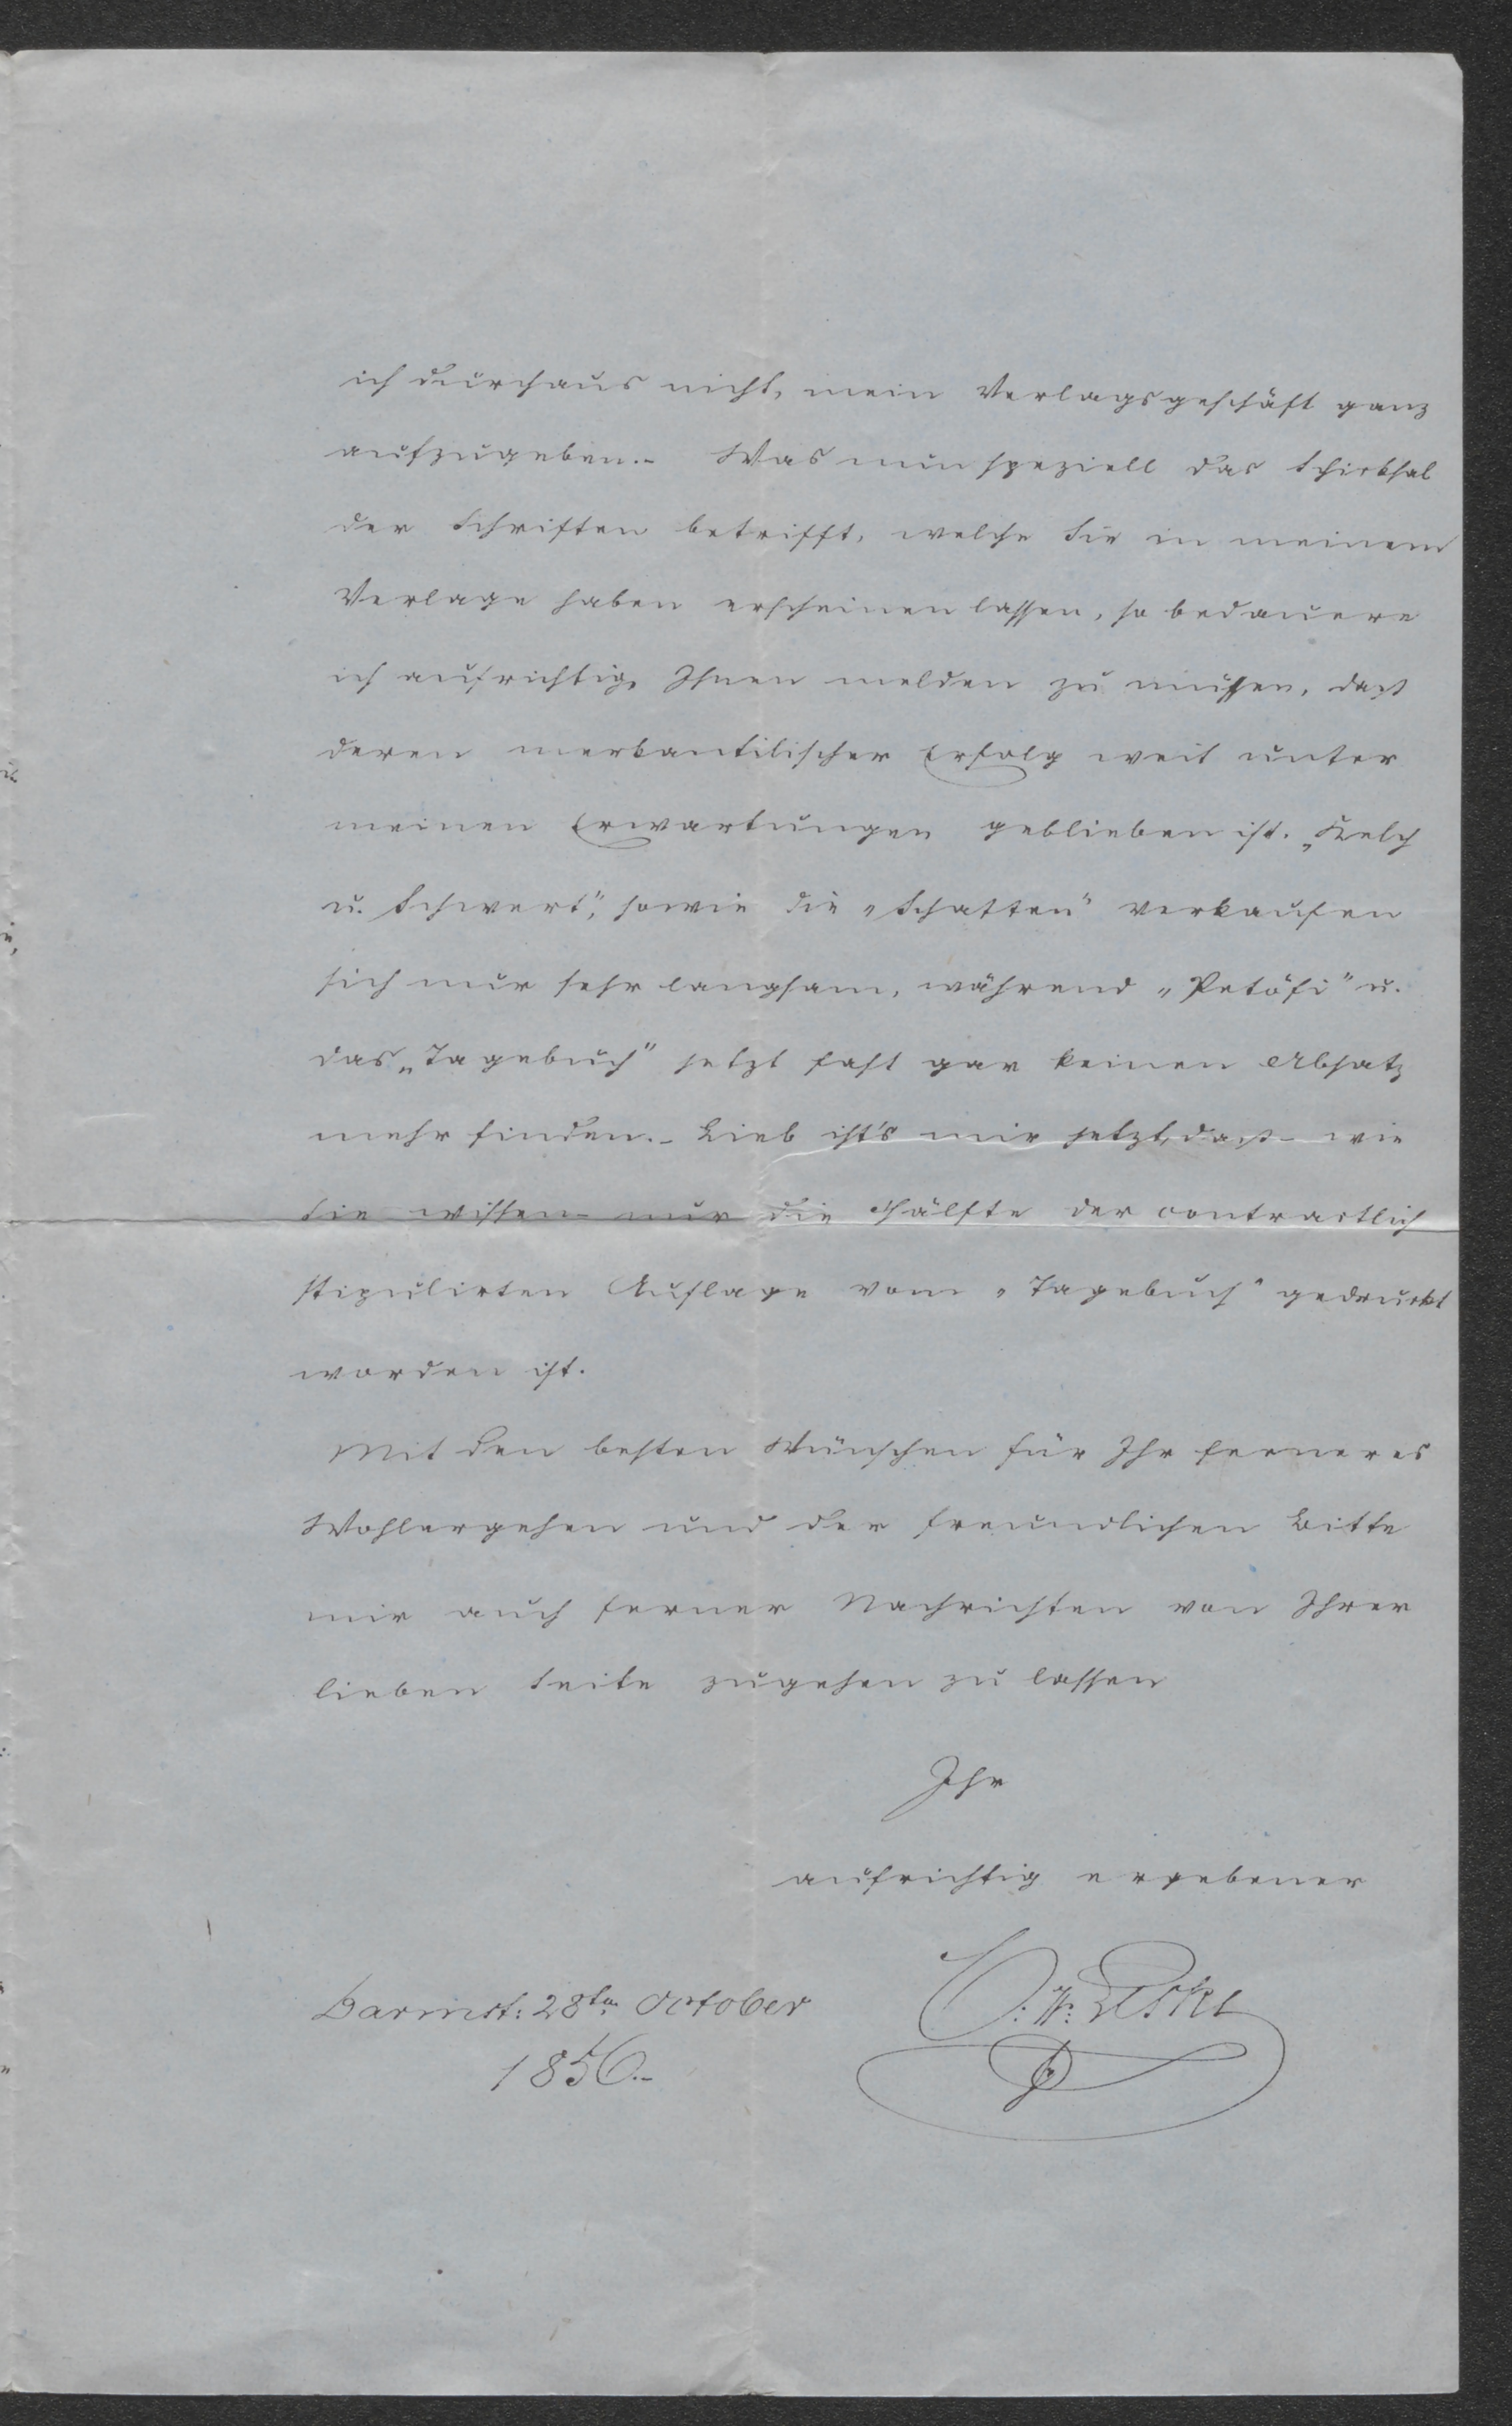 ich durchaus nicht, mein Verlagsgeschäft ganz
aufzugeben.- Was nun speziell das Schicksal
der Schriften betrifft, welche Sie in meinem
Verlage haben erscheinen lassen, so bedauere
ich aufrichtig, Ihnen melden zu müssen, daß
deren merkantilischer Erfolg weit unter
meinen Erwartungen geblieben ist. „Kelch
u. Schwert", sowie die „Schatten" verkaufen
sich nur sehr langsam, während „Petöfi" u.
das „Tagebuch" jetzt fast gar keinen Absatz
mehr finden.- Lieb ist's mir jetzt, daß - wie
Sie wissen - nur die Hälfte der contractlich
stipulirten Auflage vom „Tagebuch" gedruckt
worden ist.
Mit den besten Wünschen für Ihr ferneres
Wohlergehen und der freundlichen Bitte
mir auch ferner Nachrichten von Ihrer
lieben Seite zugehen zu lassen
Ihr
aufrichtig ergebener
Darmst: 28ten October
1856.-
C. W. Leske